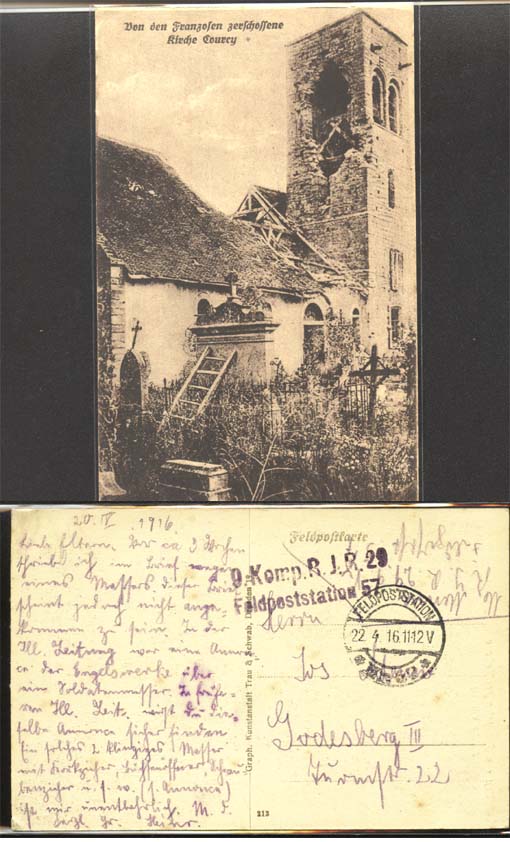 Von den Franzosen zerschossene
Kirche Courcy
1916.
Liebe Eltern. Vor ca 3 Wochen
schrieb ich im Brief wegen
eines Messers dieser Brief
scheint jedoch nicht ange-
kommen zu sein. In der
Ill. Zeitung war eine Annon-
ce der Engelswerke über
ein Soldatenmesser. In frühe-
ren Ill. Zeit. wirst du die-
selbe Annonce sicher finden
Ein solches 2 klingiges Messer
mit Korkzieher, Büchsenöffner, Schrau-
benzieher u. s. w. (s. Annonce)
ist mir unentbehrlich. M. d.
herzl. Gr.
Feldpostkarte
9. Komp. R. J. R. 29
Feldpoststation 57
FELDPOSTSTATION
22 4 16 11-12 V
Herrn
Jos
Godesberg III
Turmstr. 22
Graph. Kunstanstalt Trau & Schwab, Dresden
213